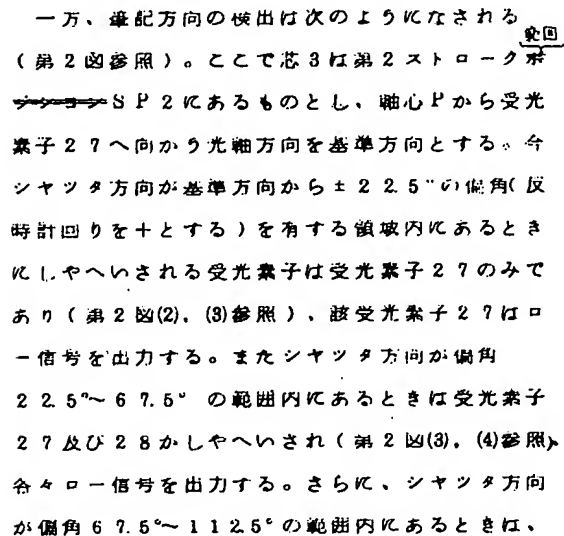 一方、筆記方向の検出は次のようになされる
範囲
(第2図参照)。ここで芯3は第2ストロークポ
ジションSP2にあるものとし、軸心Pから受光
素子27へ向かう光軸方向を基準方向とする。今
シヤツタ方向が基準方向から±22.5°の偏角(反
時計回りを+とする)を有する領域内にあるとき
にしやへいされる受光素子は受光素子27のみで
あり(第2図(2),(3)参照)、該受光素子27はロ
ー信号を出力する。またシヤツタ方向が偏角
22.5°~67.5°の範囲内にあるときは受光素子
27及び28がしやへいされ(第2図(3),(4)参照)、
各々ロー信号を出力する。さらに、シヤツタ方向
が偏角67.5°~112.5°の範囲内にあるときは、